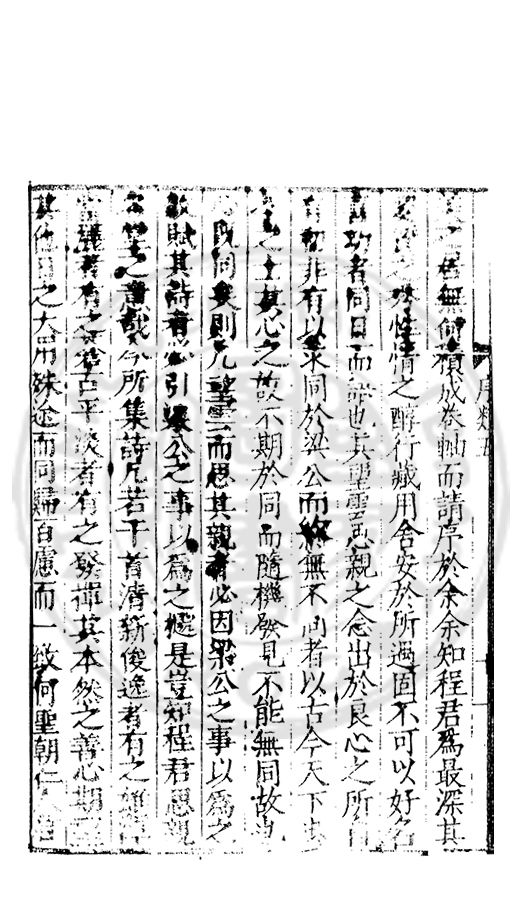 序類五
無何積成卷軸而請序於余余知程君為最深其
之性情之醇行藏用舍安於所遇固不可以好名
功者同日而語也其望雲思親之念出於良心之所自
有初非有以求同於梁公而終無不同者以古今天下
之士其心之故不期於同而隨機發見不能無同故也
既同矣則凡望雲而思其親者必因梁公之事以為之
賦其詩者必引梁公之事以為之是豈知程君思親
之意哉今所集詩凡若干首清新俊逸者有之
者有之若古平淡者有之發揮其本然之善心期
其他日之大用殊途而同歸百慮而一致何聖朝仁